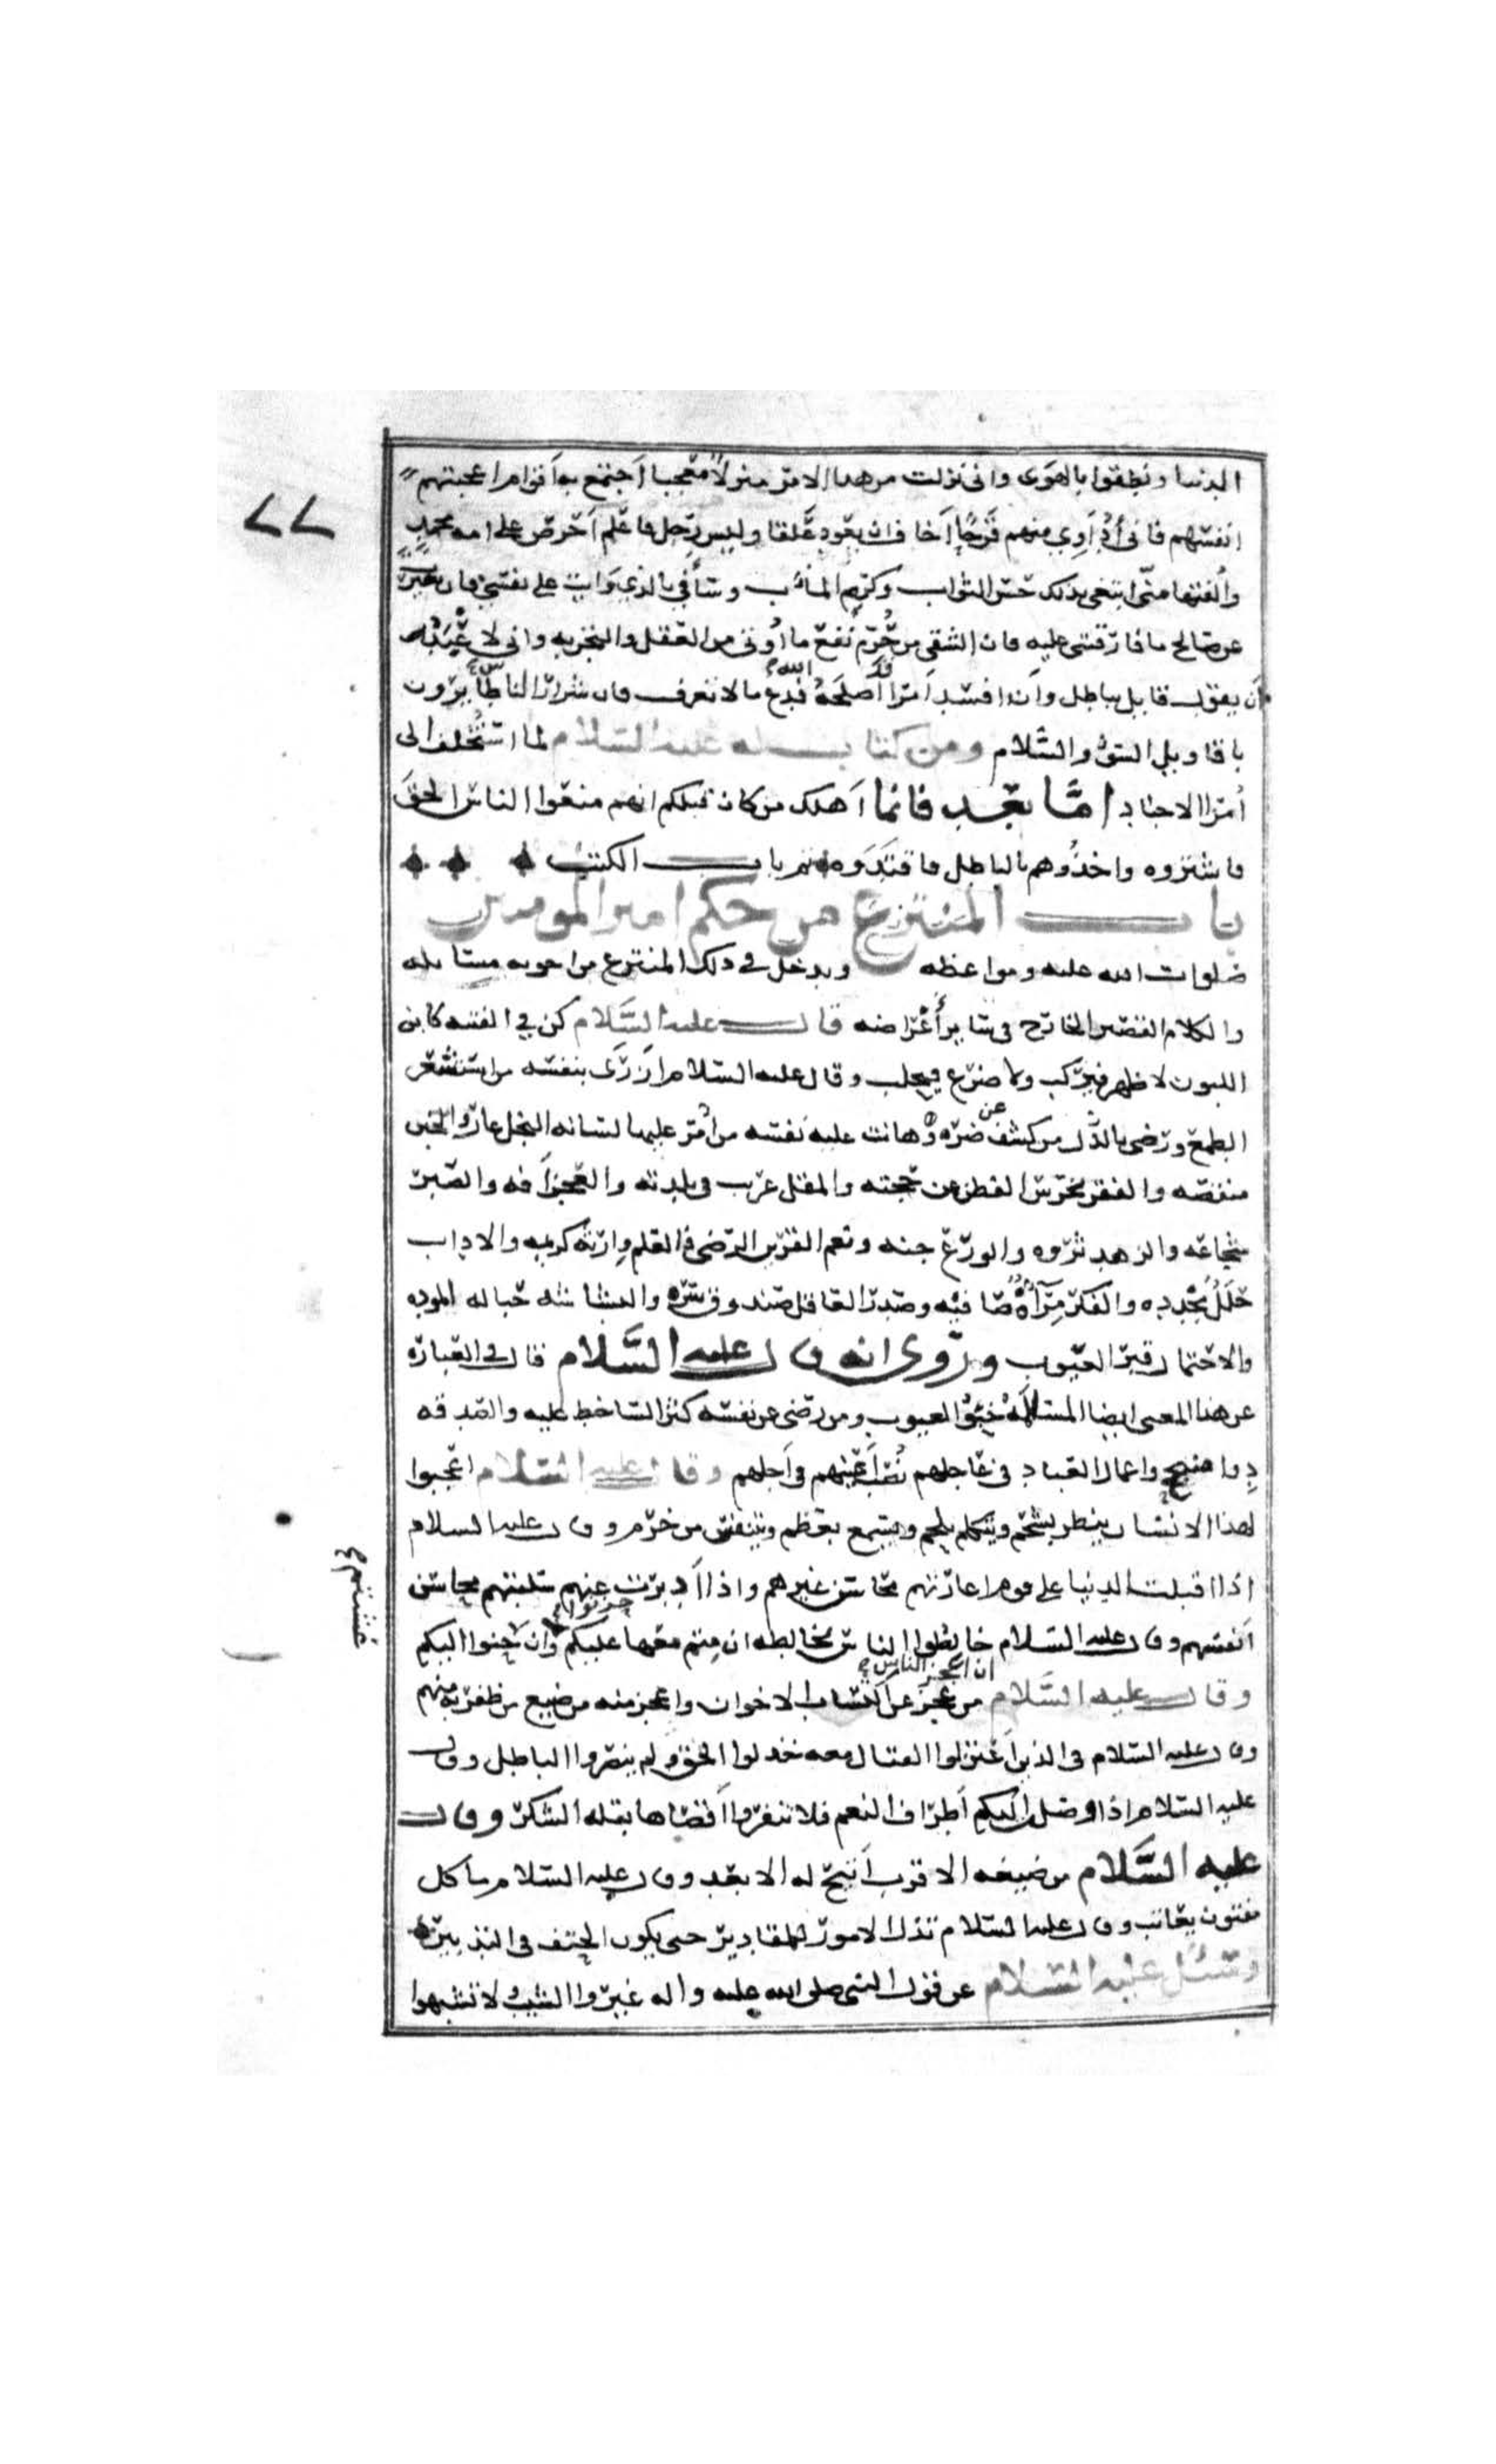 ٧٧
الدنيا ونطقوا بالهوى وانى نزلت من هذا الامر منزلا معجبا اجتمع به اقوام اعجبتهم
انفسهم فانى أداوي منهم قرحا اخاف ان يعود علقا وليس رجل فاعلم احرص على امه محمد
والفتها منّى ابتغى بذلك حسن الثواب وكريم المأب وسأفي بالذي وايت على نفسى وان تغيرت
عن صالح ما فارقتنى عليه فان الشقى من حُرم نفع ما أوتى من العقل والتجربه وانى لاعبد
ان يقول قايل بباطل وان افسد امرا قد اصلحه الله فدع ما لا تعرف فان شرار الناس طايرون
باقاويل السوء والسّلام ومن كتاب له عليه السلام لما استُخلف الى
أمرا الاجناد امّا بعد فانما اهلك من كان قبلكم انهم منعوا الناس الحق
فاشتروه واخذوهم بالباطل فاقتدوه تم باب الكتب
باب المنتزع من حكم امير المومنين
صلوات الله عليه ومواعظه ويدخل في ذلك المنتزع من اجوبه مسايله
والكلام القصير الخارج فى ساير أغراضه قال عليه السَّلام كن في الفتنه كابن
اللبون لا ظهر فيركب ولا ضرع فيحلب وقال عليه السلام ازرى بنفسه من استشعر
الطمع ورضى بالذل من كشف عن ضره وهانت عليه نفسه من أمّر عليها لسانه البخل عار والجبن
منقصه والفقر يخرس الفطن عن حجته والمقل غريب فى بلدته والعجز آفه والصبر
شجاعه والزهد ثروه والورع جنه ونعم القرين الرضى والعلم وراثه كريمه والاداب
حلل مجدده والفكر مرآه صافيه وصدر العاقل صندوق سره والبشاشه حباله الموده
والاحتمال قبر العيوب وروى انه قال عليه السَّلام قال في العباره
عن هذا المعنى ايضا المسالمه خبؤ العيوب ومن رضى عن نفسه كثر الساخط عليه والصدقه
دوا منجح واعمال العباد فى عاجلهم نُصب أعينهم فى آجلهم وقال عليه السلام اعجبوا
لهذا الانسان ينظر بشحم ويتكلم بلحم ويسمع بعظم ويتنفس من خرم وقال عليه السلام
اذا اقبلت الدنيا على قوم اعارتهم محاسن غيرهم واذا ادبرت عنهم سلبتهم محاسن
انفسهم وقال عليه السلام خالطوا الناس مخالطه ان متم معها بكوا عليكم وان عشتم حنوا اليكم
وقال عليه السّلام ان اعجز الناس من عجز عن اكتساب الاخوان واعجز منه من ضيع من ظفر به منهم
وقال عليه السلام فى الذين اعتزلوا القتال معه خذلوا الحق ولم ينصروا الباطل وقال
عليه السلام اذا وصلت اليكم اطراف النعم فلا تنفروا اقصاها بقله الشكر وقال
عليه السَّلام من ضيعه الاقرب أتيح له الابعد وقال عليه السلام ما كل
مفتون يعاتب وقال عليه السلام تذل الامور للمقادير حتى يكون الحتف فى التدبير
وسئل عليه السّلام عن قول النبى صلى الله عليه واله غيروا الشيب ولا تشبهوا
عشتم